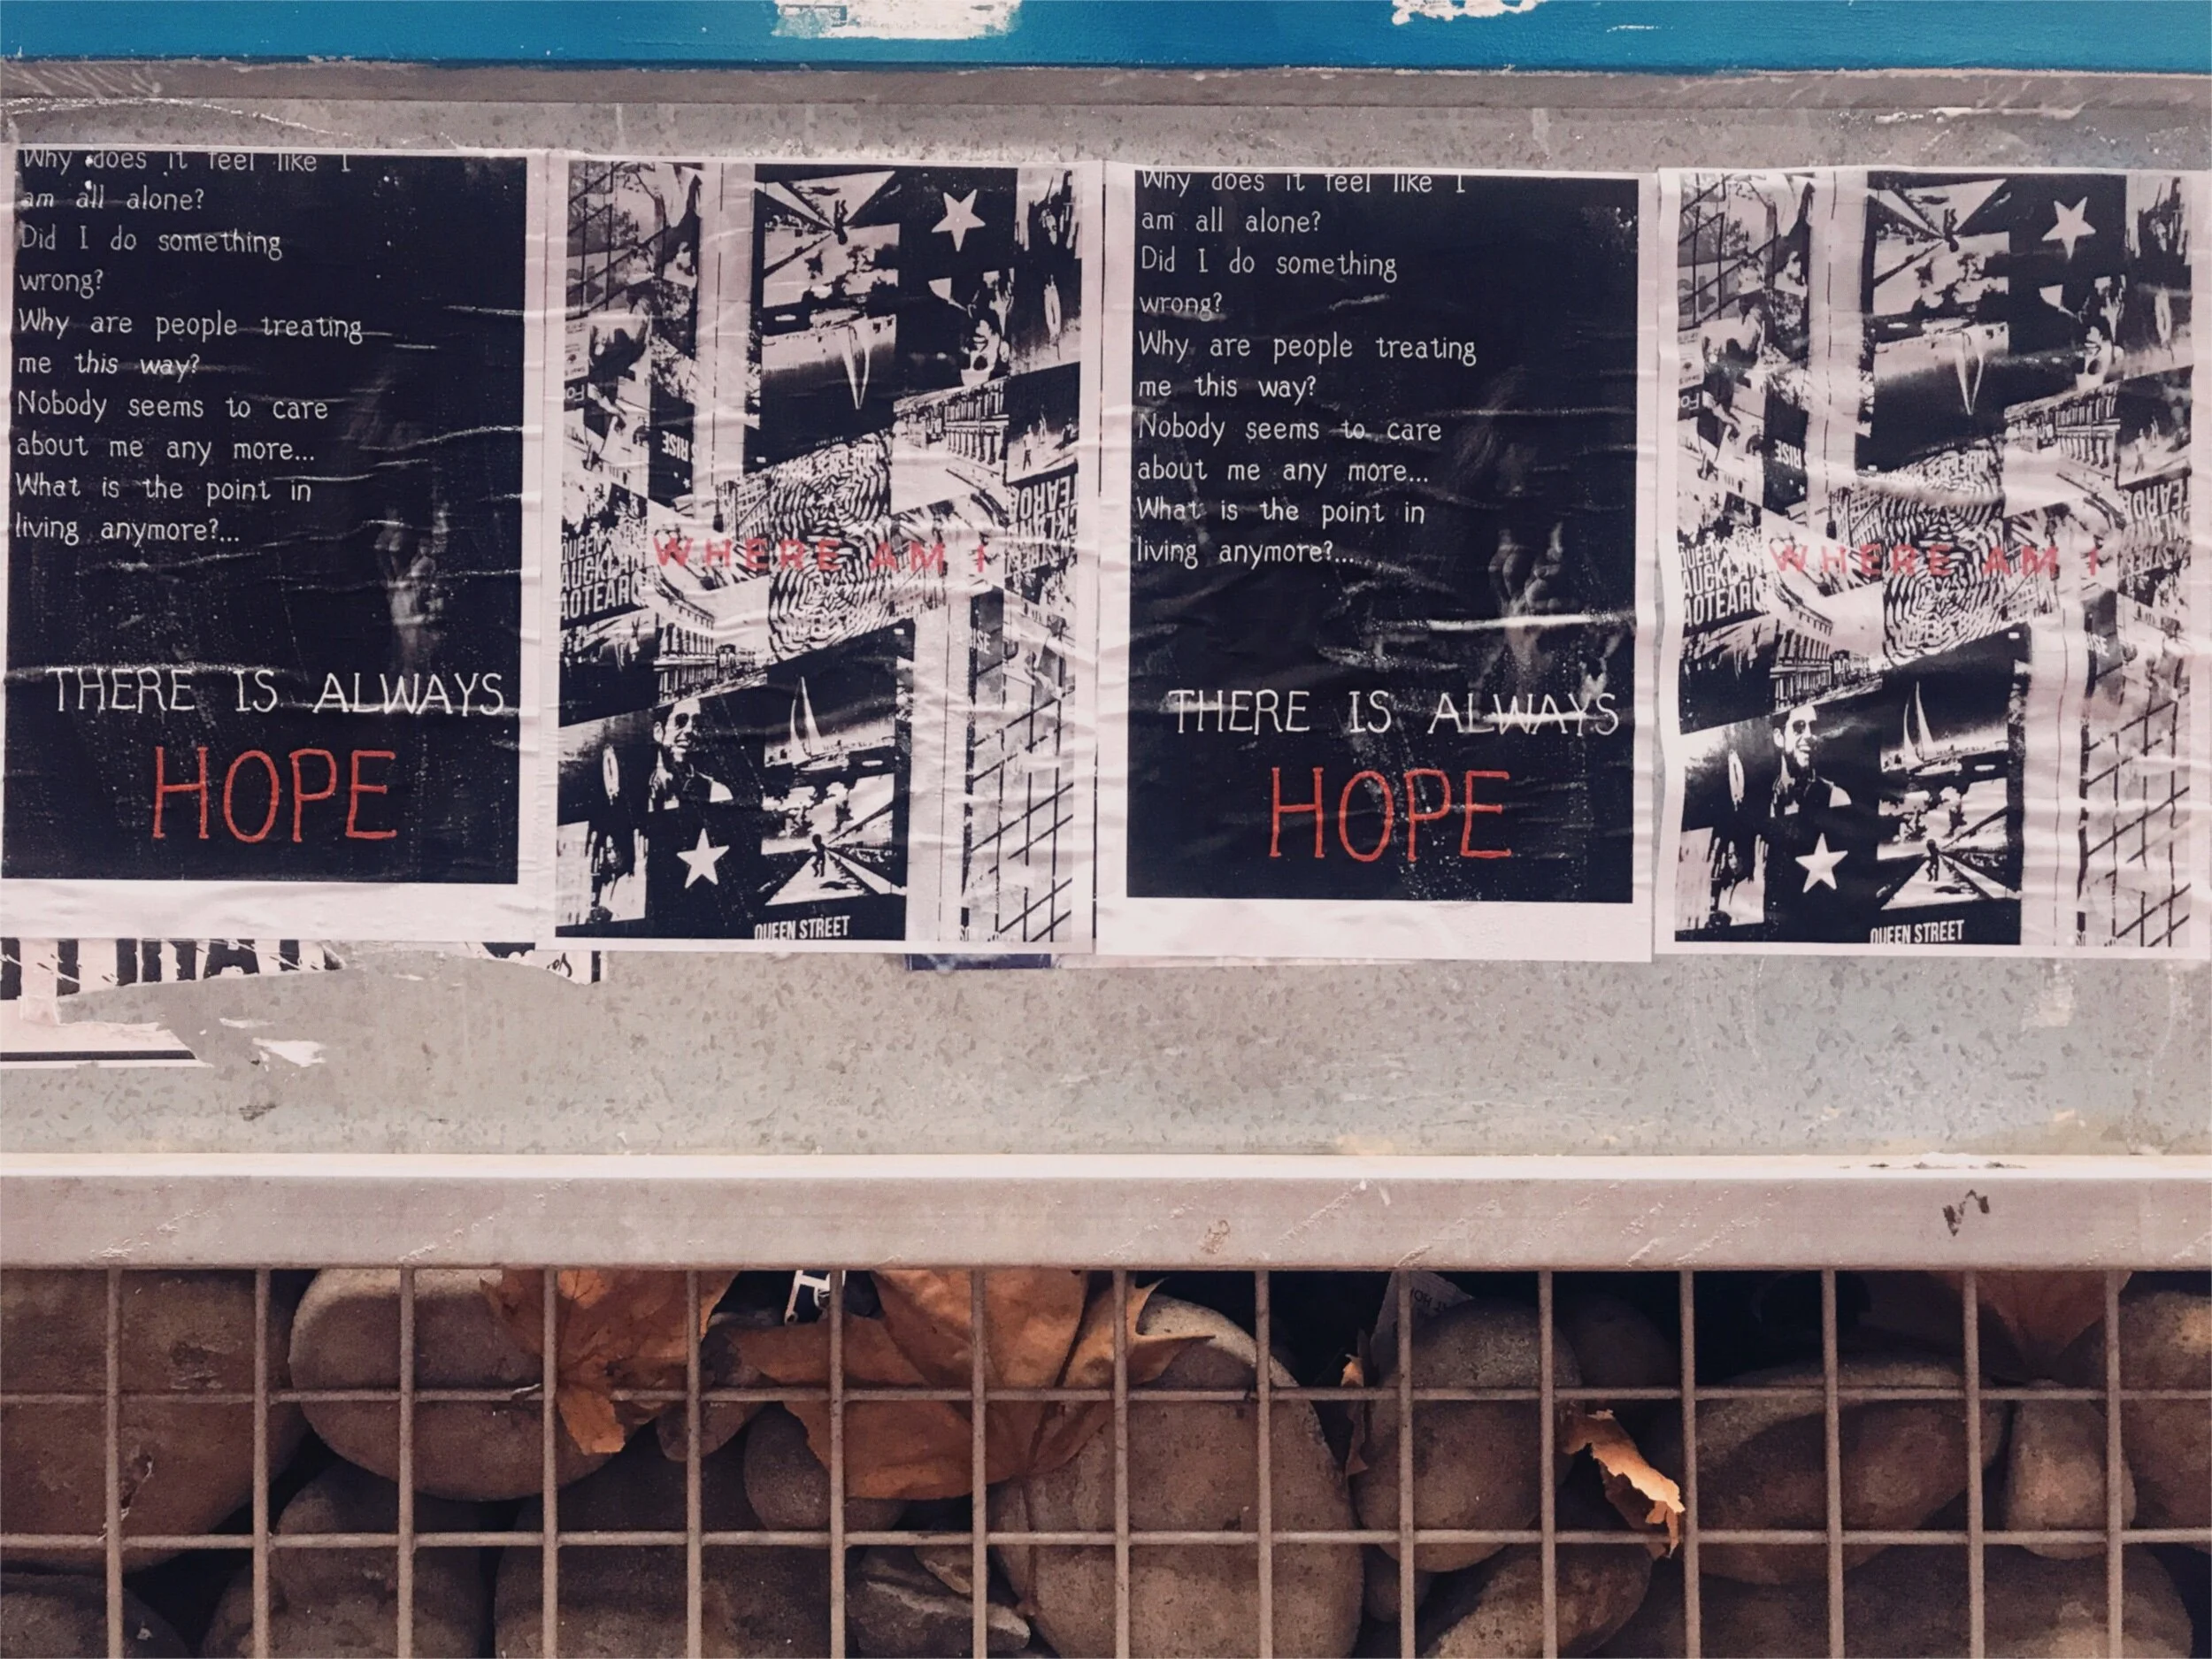 Why does it feel like I
am all alone?
Did I do something
wrong?
Why are people treating
me this way?
Nobody seems to care
about me any more...
What is the point in
living anymore?...
THERE IS ALWAYS
HOPE
RISE
WHERE AM I
QUEEN
AUCKL
AOTEARO
QUEEN STREET
Why does it feel like I
am all alone?
Did I do something
wrong?
Why are people treating
me this way?
Nobody seems to care
about me any more...
What is the point in
living anymore?...
THERE IS ALWAYS
HOPE
RISE
WHERE AM I
QUEEN
AUCKL
AOTEARO
QUEEN STREET